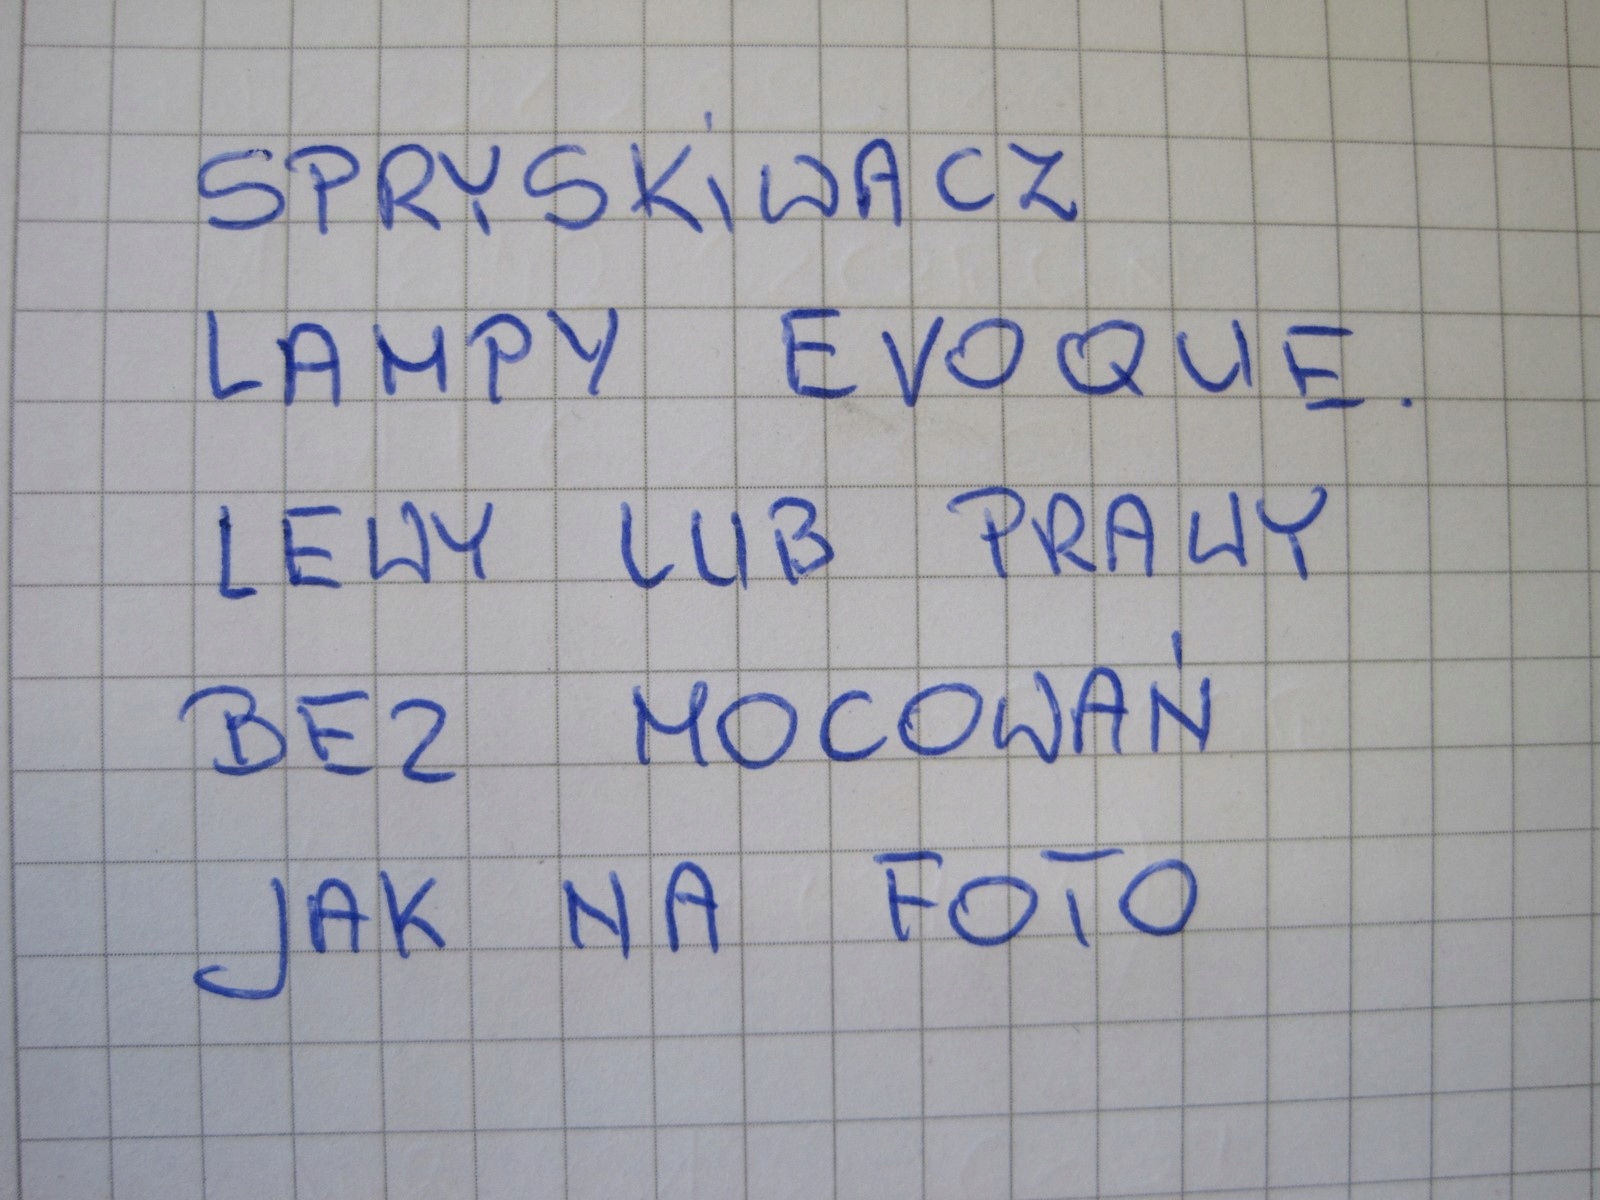 SPRYSKiWACZ
LAMPY EVOQUE.
LEWY LUB PRAWY
BEZ MOCOWAŃ
JAK NA FOTO